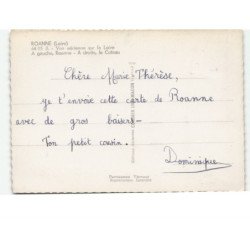 ROANNE (Loire)
Vue aérienne sur la Loire
A gauche, Roanne - A droite, le Coteau
Chère Marie-Thérèse,
je t'envoie cette carte de Roanne
avec de gros baisers-
Ton petit cousin.
Dominique